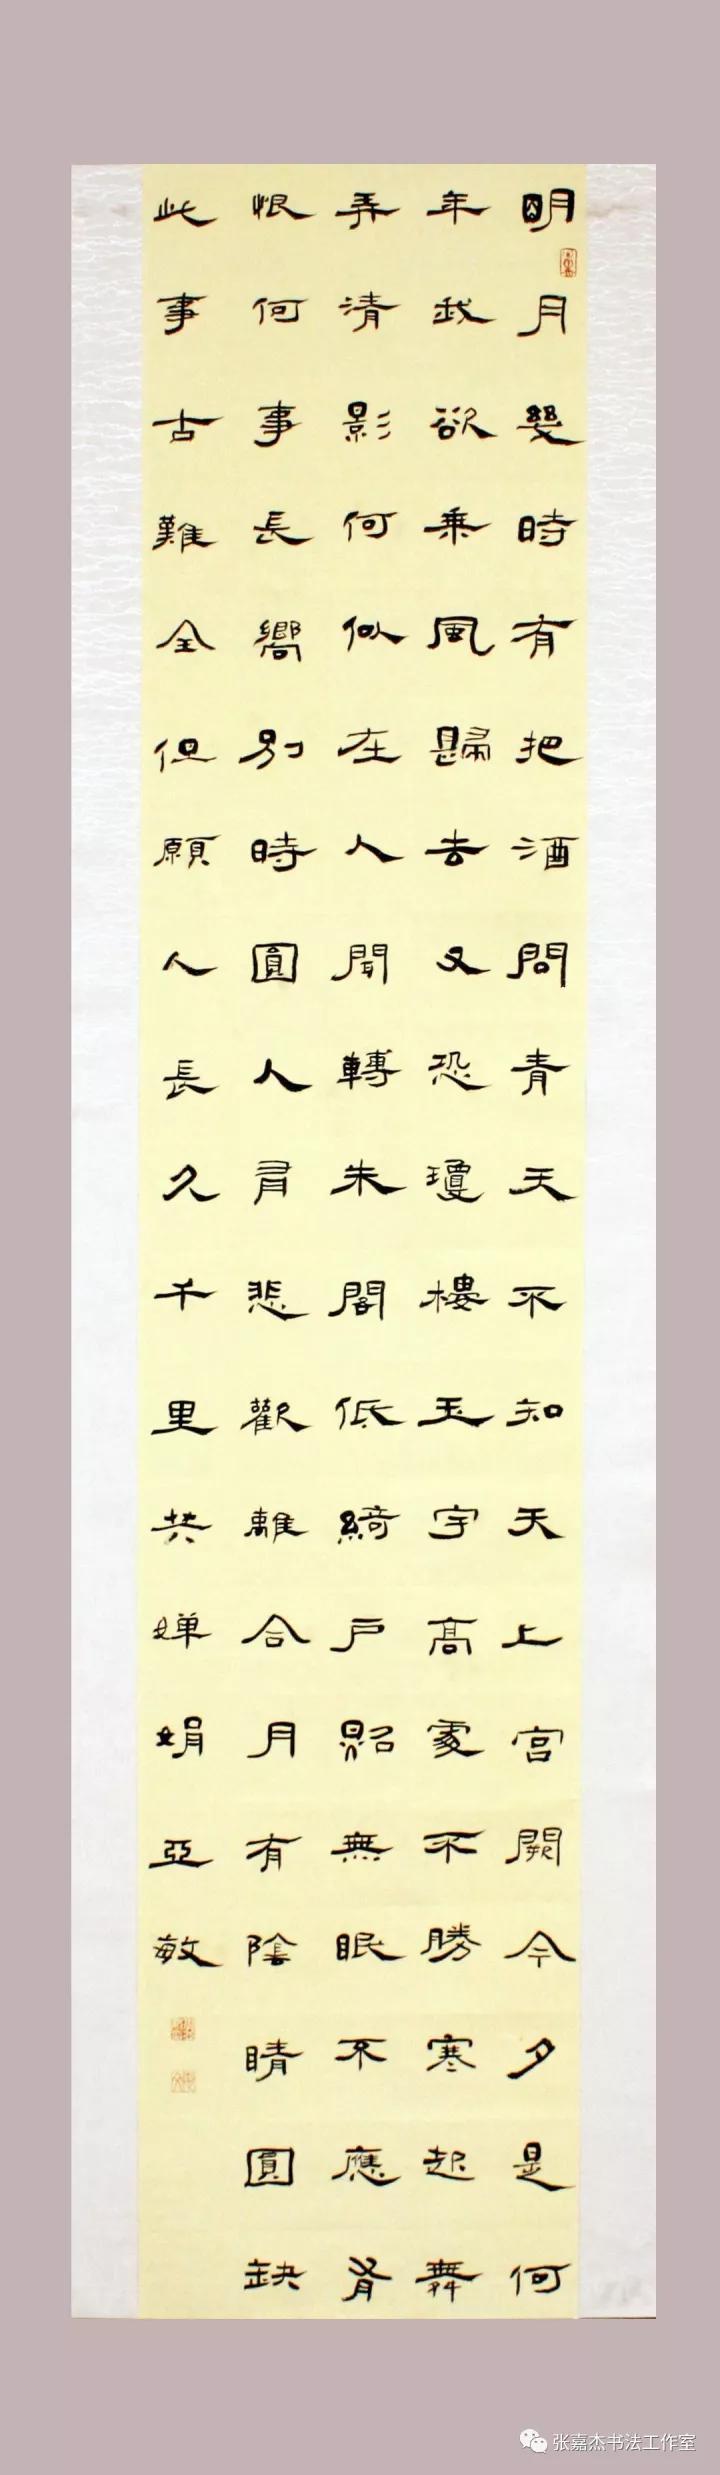 明月幾時有把酒問青天不知天上宮闕今夕是何
年我欲乘風歸去又恐瓊樓玉宇高處不勝寒起舞
弄清影何似在人間轉朱閣低綺戶照無眠不應有
恨何事長嚮別時圓人有悲歡離合月有陰晴圓缺
此事古難全但願人長久千里共嬋娟亞敏
张嘉杰书法工作室